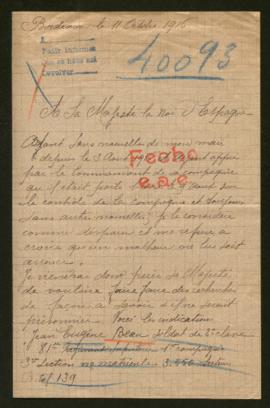 Bordeaux le 11 Octobre 1916
A
40093
A Sa Majesté le Roi d'Espagne
Ayant sans nouvelles de mon mari
depuis le 3 Août
Fecho
par le Commandant de sa compagnie
qu'il était porté
le contrôle de la compagnie et toujours
sans autre nouvelle, je le considère
comme disparu et me refuse à
croire qu'un malheur ne lui soit
arrivé.
Je viendrai donc prier Sa Majesté
de vouloir faire faire des recherches
de façon à savoir s'il ne serait
prisonnier. Voici les indications
Jean Eugène Beau soldat de 2e classe
81e 1e compagnie
3e Section
B 6/139